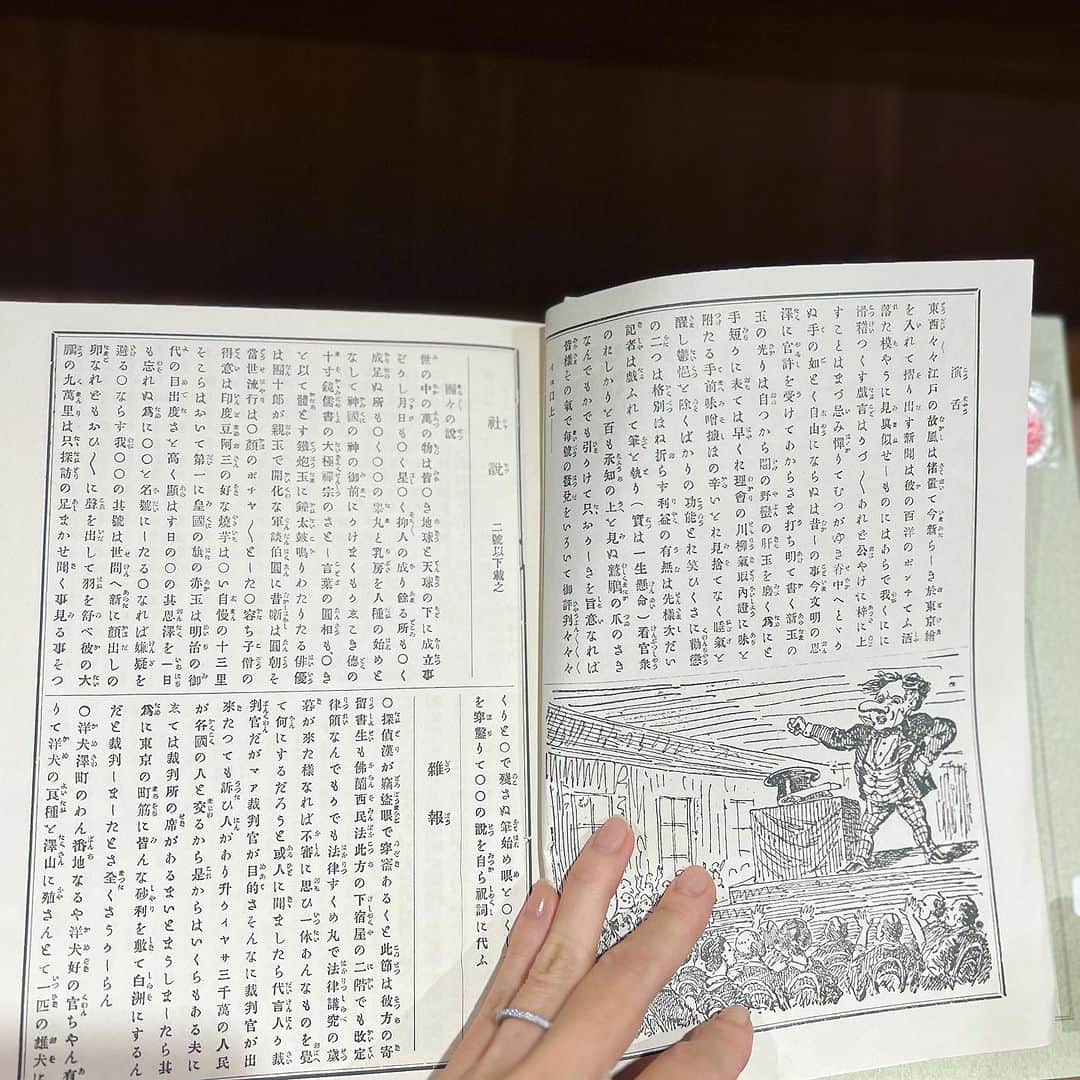 演舌
東西々々江戸の故風は偖置て今新らしき於東京繪
を入れて摺り出す新聞は彼の西洋のポンチてふ洒
落た模やうに見眞似せしものにはあらで我
滑稽つくす戯言はりづくしあれど公やけに梓に上
すことはまづ忌み憚りてむつがゆき脊中へとゞり
ぬ手の如とく自由にならぬは昔しの事いま文明の恩
澤に官許を受けてあからさま打ち明て書く新玉の
玉の光りは自つから間の野暮の肝玉を磨く爲にと
手短りに表ては早くれ理會の川柳氣取內證に味と
附たる手前味噌摅ほの辛いとれ見捨てなく睡氣と
醒し鬱悒と除くばかりの功能され笑ひくさに勸懲
の二つは格別ほね折らす利益の有無は先樣次だい
記者は戯ふれて筆と執り(實は一生懸命)看官衆
のれしかりと百も承知の上と見ぬ鷲鵰の爪のさき
なんでもかでも引りけて只おりしきを旨意なれば
皆樣その氣で每號の發兌をいろいて御評判々々
イヨ口上――
社說
二號以下載之
團々の說
世の中の萬の物は皆〇き地球と天球の下に成立事
どうし月日も〇く星〇く抑人の成り餘る所も〇く
成足ぬ所も〇く〇〇の睾丸と乳房を人種の始めと
なして神國の神の御前にうけまくもゑこき德の
十寸鏡儒書の大極禪宗のさとし言葉の圓相も〇き
と以て體とす鐵炮玉に鐘太皷鳴りわたりたる俳優
は團十郎が親玉で開化な軍談伯圓に昔噺は圓朝そ
當世流行は〇顏のポチャ〱とした〇容ち子僧の
得意は印度豆阿三の好な燒芋は〇い自慢の十三里
そこらはおいて第一に皇國の旗の赤玉は明治の御
代の目出度さと高く顯はす日の〇の其恩澤を一日
も忘れぬ爲に〇〇と名號にしたる〇なれば嫌疑を
避る〇ならす我〇〇〇の其號は世間へ新に顏出しの
卵なれどもおひ〱に聲を出して羽を舒べ彼の大
鵬の九萬里は只探訪の足まかせ聞く事見る事そつ
くりと〇で殘さぬ筆始め眼と〇く
を穿鑿りて〇〇の說を自ら祝詞に代ふ
雜報
〇探偵漢が竊盜眼で穿索あるくと此節は彼方の寄
留書生も佛蘭西民法此方の下宿屋の二階でも改定
律領なんでもりでも法律すくめ丸で法律講究の歲
暮が來た樣なれば不審に思ひ一体あんなものを覺
て何にするだろうと或人に聞ましたら代言人り裁
判官だがマァ裁判官が目的さそんなに裁判官が出
來たつても訴ひ人があり升ゥィャサ三千萬の人民
が各國の人と交るから是からはいくらもある夫に
ゑては裁判所の席があるまいとまうしましたら其
爲に東京の町筋に皆んな砂利を敷て白洲にするん
だと裁判しましたとさ全くさうりしらん
〇洋犬澤町のわん番地なるや洋犬好の官ちやん有
りて洋犬の良種と澤山に殖さんとて一匹の雄犬に